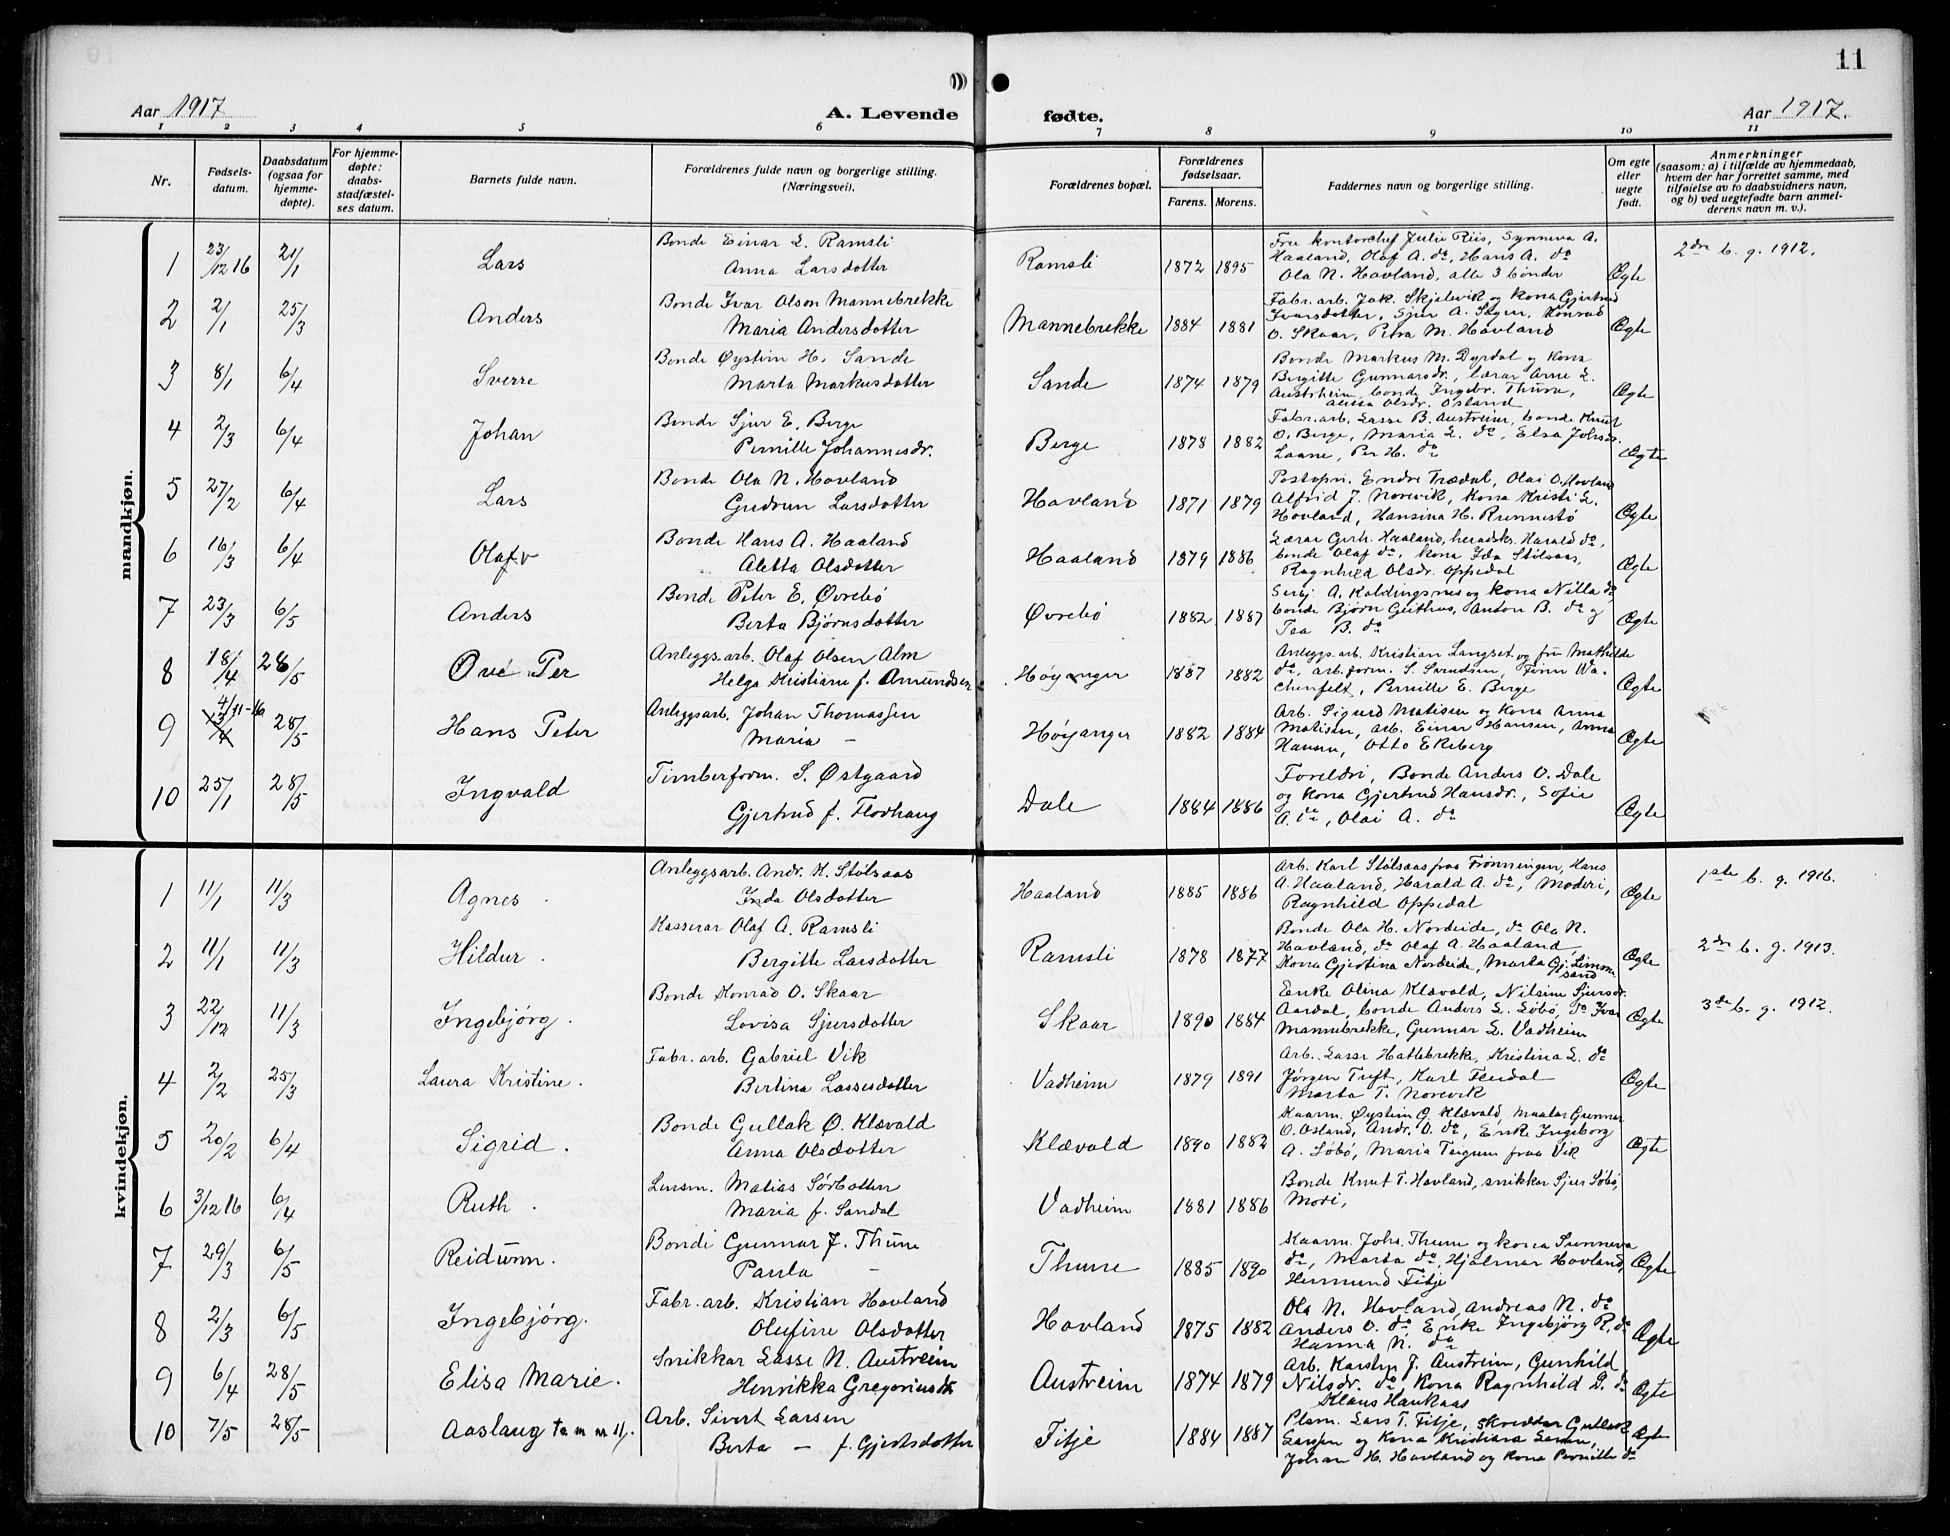 11
Aar 1917
A. Levende
fødte.
Aar 1917.
1 2 3 4 5 6 7 8 9 10 11
Nr.
Fødsels-
datum.
Daabsdatum
(ogsaa for
hjemme-
døpte).
For hjemme-
døpte:
daabs-
stadfæstel-
ses datum.
Barnets fulde navn.
Forældrenes fulde navn og borgerlige stilling.
(Næringsvei).
Forældrenes bopæl.
Forældrenes
fødselsaar.
Farens. Morens.
Faddernes navn og borgerlige stilling.
Om egte
eller
uegte
født.
Anmerkninger
(saasom: a) i tilfælde av hjemmedaab,
hvem der har forrettet samme, med
tilføielse av to daabsvidners navn,
og b) ved uegtefødte barn anmel-
derens navn m. v.).
mandkjøn.
1 23/12 16 21/1 Lars
Bonde Einar L. Ramsli
Anna Larsdotter
Ramsli 1872 1895
Fru kontorchef Julie Riis, Synneva A.
Haaland, Olaf A. do, Hans A. do
Ola N. Hovland, alle 3 bønder
Ægte
2dre b. g. 1912.
2 2/1 25/3 Anders
Bonde Ivar Olson Mannebrekke
Maria Andersdotter
Mannebrekke 1884 1881
Fabr. arb. Jak. Skjelevik og kona Gjertrud
Ivarsdotter, Sjur A. Konrad
O. Skaar, M. Hovland
Ægte
3 8/1 6/4 Sverre
Bonde Øystein H. Sande
Marta Markusdotter
Sande 1874 1879
Bonde Markus M. Dyrdal og kona
Bergitte Gunnarsdr., lærar Arne L.
Austrheim, bonde Ingebr. Thune,
Anna Olsdr. Osland
Ægte
4 2/3 6/4 Johan
Bonde Sjur E. Berge
Pernille Johannesdr.
Berge 1878 1882
Fabr. arb. Lasse B. Austreim, bonde Knut
O. Berge, Maria L. do, Elsa Johsdr.
Laane, Per H. do
Ægte
5 27/2 6/4 Lars
Bonde Ola N. Hovland
Gudrun Larsdotter
Hovland 1871 1879
Postopn. Endre Trædal, Olai O. Hovland
Alfrid J. Norevik, kona Kristi L.
Hovland, Hansina H. Runnestø
Ægte
6 16/3 6/4 Olav
Bonde Hans A. Haaland
Aletta Olsdotter
Haaland 1879 1886
Lærar Gerh. Haaland, heradsk. Harald do,
bonde Olaf do, kona Ida Stølsaas,
Ragnhild Olsdr. Oppedal
Ægte
7 23/3 6/5 Anders
Bonde Peter E. Øvrebø
Berta Bjørnsdotter
Øvrebø 1882 1887
Serbj. A. Koldingsnes og kona Nilla do
bonde Bjørn Geithus, Anton B. do og
Tea B. do
Ægte
8 18/4 28/5 Ove Per
Anleggsarb. Olaf Olsen Alm
Helga Kristiane f. Amundsen
Høyanger 1887 1882
Anleggsarb. Kristian Langset og fru Mathilde
do, arb. form. S. Finn Wa-
chenfelt, Pernille E. Berge
Ægte
9 4/11-16 28/5 Hans Peter
Anleggsarb. Johan Thomassen
Maria —
Høyanger 1882 1884
Arb. Sigurd Matisen og kona Anna
Matisen, arb. Einar Hansen, Anna
Otto Ekeberg
Ægte
10 25/1 28/5 Ingvald
Timberform. S. Østgaard
Gjertrud f. Flodhaug
Dale 1884 1886
Foreldri, Bonde Anders O. Dale
og kona Gjertrud Hansdr., Sofie
A. do, Olai A. do
Ægte
kvindekjøn.
1 11/1 11/3 Agnes.
Anleggsarb. Andr. K. Stølsaas
Inda Olsdotter
Haaland 1885 1886
Arb. Karl Stølsaas fraa Frønningen, Hans
A. Haaland, Harald A. do, Moderi,
Ragnhild Oppedal
Ægte
1ste b. g. 1916.
2 11/1 11/3 Hildur.
Kasserar Olaf A. Ramsli
Bergitte Larsdotter
Ramsli 1878 1877
Bonde Ola H. Nordeide, do Ola N.
Hovland, do Olaf A. Haaland
Kona Gjertina Nordeide, Marta Gj. Limone
sand
Ægte
2dre b. g. 1913.
3 22/12 11/3 Ingebjørg.
Bonde Konrad O. Skaar
Lovisa Sjursdotter
Skaar 1890 1884
Enke Olina Klævold, Nilsine Sjursdr.
Aardal, bonde Anders L. Søbø, do Ivar
Mannebrekke, Gunnar L. Vadheim
Ægte
3de b. g. 1912.
4 2/2 25/3 Laura Kristine.
Fabr. arb. Gabriel Vik
Bertina Lassesdotter
Vadheim 1879 1891
Arb. Lasse Hattebrekke, Kristina L. do
Jørgen Tuft, Karl Feidal
Marta T. Norevik
Ægte
5 20/2 6/4 Sigrid.
Bonde Gullak Ø. Klævold
Anna Olsdotter
Klævold 1890 1882
Kaarm. Øystein G. Klævold, maalar Gunnar
O. Osland, Andr. O. do, Enke Ingeborg
A. Søbø, Maria Teigum fraa Vik
Ægte
6 3/12 16 6/4 Ruth.
Lensm. Matias Sørbotten
Maria f. Sandal
Vadheim 1881 1886
Bonde Knut T. Hovland, snikkar Sjur Søbø,
Mori,
7 29/3 6/5 Reidunn.
Bonde Gunnar J. Thune
Paula —
Thune 1885 1890
Kaarm. Johs. Thune og kona Sunneva
do, Marta do, Hjalmar Hovland,
Hermund Fitje
Ægte
8 2/3 6/5 Ingebjørg.
Fabr. arb. Kristian Hovland
Olufine Olsdotter
Hovland 1875 1882
Ola N. Hovland, Andreas N. do
Anders O. do, Enke Ingebjørg R. do
Hanna N. do
Ægte
9 6/4 28/5 Elisa Marie.
Snikkar Lasse N. Austreim
Henrikka Gregoriusdtr
Austreim 1874 1879
Arb. Karsten J. Austreim, Gunhild
Nilsdr. do, Kona Ragnhild D. do
Klaus Haukaas
Ægte
10 7/5 28/5 Aaslaug
Arb. Sivert Larsen
Berta — f. Gjertsdotter
Fitje 1884 1887
Plsm. Lars T. Fitje, skreddar Gullak
Larsen og kona Kristiana Larsen,
Johan H. Hovland og kona Pernille do
Ægte